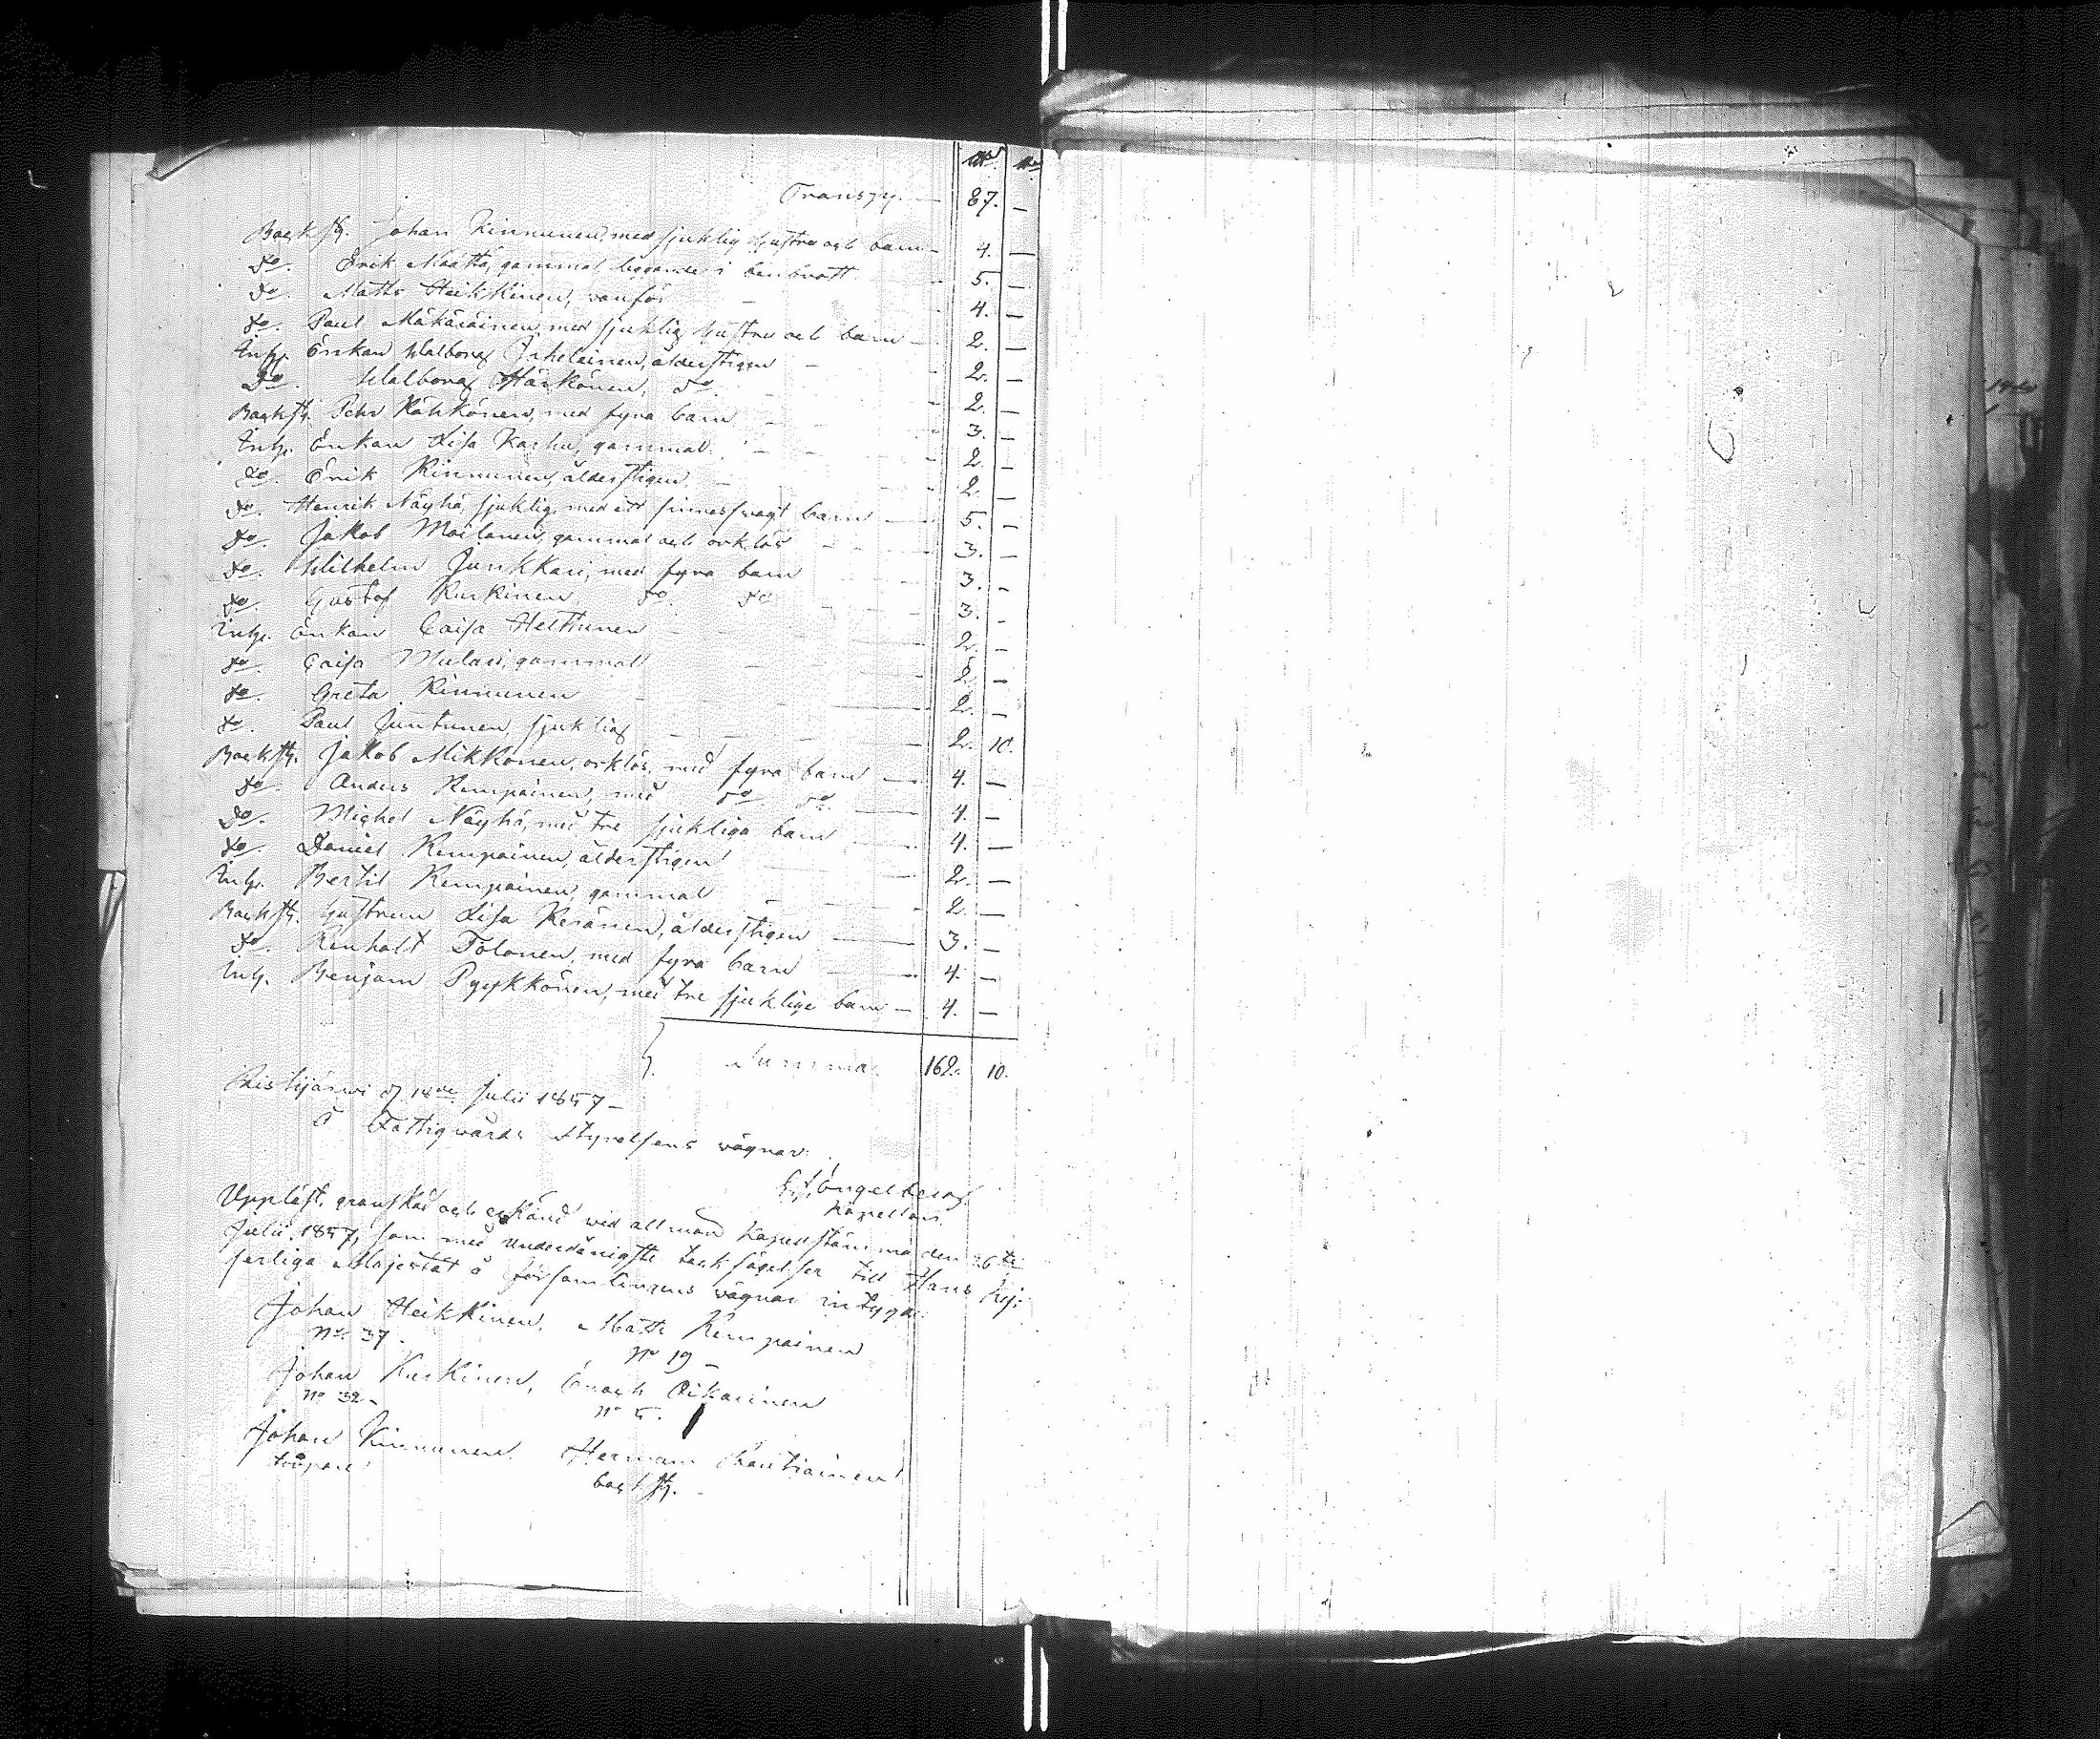 Transp. 87. —
Backstg. Johan Kinnunen, med sjuklig hustru och barn — 4. —
Do. Erik Määttä, gammal liggande i benbrott 5. —
Do. Matts Heikkinen, vanför — 4. —
Do. Paul Mäkäräinen med sjuklig hustru och barn — 2. —
Inh. Enkan Walborg Juhelainen, ålderstigen — 2. —
Do. Walborg Härkönen, do. 2. —
Backstg. Pehr Kähkönen, med fyra barn — 3. —
Inh. Enkan Lisa Karhu, gammal — 2. —
Do. Erik Kinnunen, ålderstigen — 2. —
Do. Henrik Näyhä, sjuklig, med ett sinnessvagt barn — 5. —
Do. Jakob Moilanen, gammal och orklös — 3. —
Do. Wilhelm Junkkari, med fyra barn 3. —
Do. Gustaf Kurkinen do. do. 3. —
Inh. Enkan Caisa Heittunen — 2. —
Do. Caisa Mulari, gammal — 2. —
Do. Greta Kinnunen — 2. —
Do. Paul Juntunen, sjuklig — 2. 10.
Backstg. Jakob Mikkonen, orklös, med fyra barn — 4. —
Do. Anders Kempainen, med do do. — 4. —
Do. Michel Näyhä, med tre sjukliga barn — 4. —
Do. Daniel Kempainen, ålderstigen — 2. —
Inh. Bertil Kempainen, gammal — 2. —
Backstg. Hustrun Lisa Keränen, ålderstigen — 3. —
Do. Renholt Tolonen, med fyra barn — 4. —
Inh. Benjam Pyykkönen, med tre sjuklige barn — 4. —
Summa 162. 10.
Ristijärwi d 18de Julii 1857 —
Å Fattigvårds Styrelsens vägnar.
Engelberg
Kapellan.
Uppläst, granskad och erkänd vid allmän kapellstämma den 26te
Julii 1857, som med underdånigste tacksägelser till Hans Kej-
serliga Majestät å församlingens vägnar intyga:
Johan Heikkinen, Matts Kempainen
No 37. No 19 —
Johan Kurkinen, Enoch Oikarinen
No 32 — No 5.
Johan Kinnunen. Herman Rautiainen
torpare backstg.